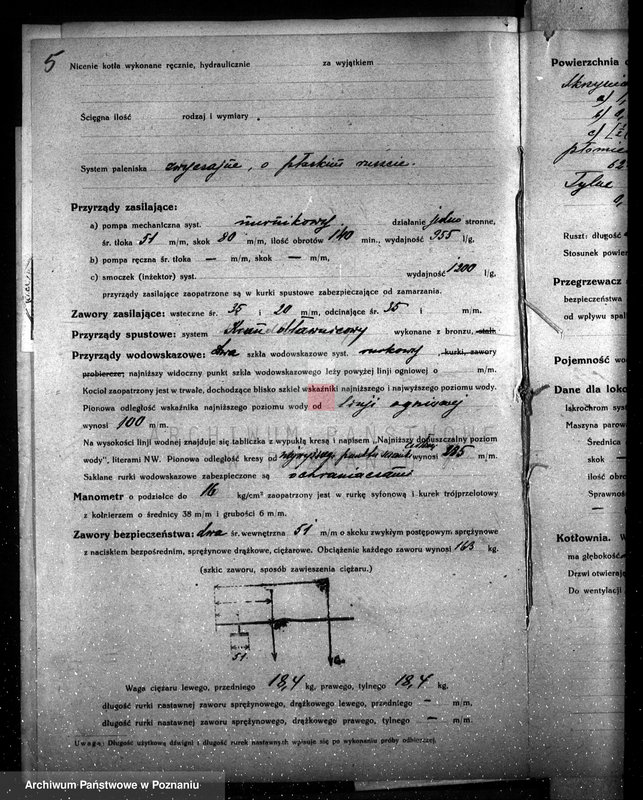 5
Nicenie kotła wykonane ręcznie, hydraulicznie za wyjątkiem
Ściągna ilość rodzaj i wymiary
System paleniska zwyczajne, o płaskim ruszcie.
Przyrządy zasilające:
a) pompa mechaniczna syst. nurnikowy działanie jedno stronne,
śr. tłoka 51 m/m, skok 80 m/m, ilość obrotów 140 min., wydajność 955 l/g,
b) pompa ręczna śr. tłoka — m/m, skok — m/m,
c) smoczek (inżektor) syst. wydajność 1200 l/g,
przyrządy zasilające zaopatrzone są w kurki spustowe zabezpieczające od zamarzania.
Zawory zasilające: wsteczne śr. 35 i 20 m/m, odcinające śr. 35 i m/m.
Przyrządy spustowe: system wykonane z bronzu, stali
Przyrządy wodowskazowe: dwa szkła wodowskazowe syst. rurkowy, kurki, zawory
probiercze; najniższy widoczny punkt szkła wodowskazowego leży powyżej linji ogniowej o m/m.
Kocioł zaopatrzony jest w trwałe, dochodzące blisko szkieł wskaźniki najniższego i najwyższego poziomu wody.
Pionowa odległość wskaźnika najniższego poziomu wody od linji ogniowej
wynosi 100 m/m.
ARCHIWUM PAŃSTWOWE
Na wysokości linji wodnej znajduje się tabliczka z wypukłą kresą i napisem „Najniższy dopuszczalny poziom
wody", literami NW. Pionowa odległość kresy od najwyższego punktu wynosi 225 m/m.
Szklane rurki wodowskazowe zabezpieczone są ochraniaczami
Manometr o podziałce do 16 kg/cm² zaopatrzony jest w rurkę syfonową i kurek trójprzelotowy
z kołnierzem o średnicy 38 m/m i grubości 6 m/m.
Zawory bezpieczeństwa: dwa śr. wewnętrzna 51 m/m o skoku zwykłym postępowym sprężynowe
z naciskiem bezpośrednim, sprężynowe drążkowe, ciężarowe. Obciążenie każdego zaworu wynosi 163 kg.
(szkic zaworu, sposób zawieszenia ciężaru.)
51
Waga ciężaru lewego, przedniego 18,4 kg, prawego, tylnego 18,4 kg,
długość rurki nastawnej zaworu sprężynowego, drążkowego lewego, przedniego — m/m.
długość rurki nastawnej zaworu sprężynowego, drążkowego prawego, tylnego — m/m.
Uwaga: Długość użytkową dźwigni i długość rurek nastawnych wpisuje się po wykonaniu próby odbiorczej.
Powierzchnia
Skrzynia
a)
b)
c)
płomie
Tylne
Ruszt: długość
Stosunek powier
Przegrzewacz
bezpieczeństwa
od wpływu spal
Pojemność wo
Dane dla loko
Iskrochron syst
Maszyna parow
Średnica
skok —
ilość obro
Sprawność
—
Kotłownia. W
ma głębokość
Drzwi otwierają
Do wentylacji
Archiwum Państwowe w Poznaniu